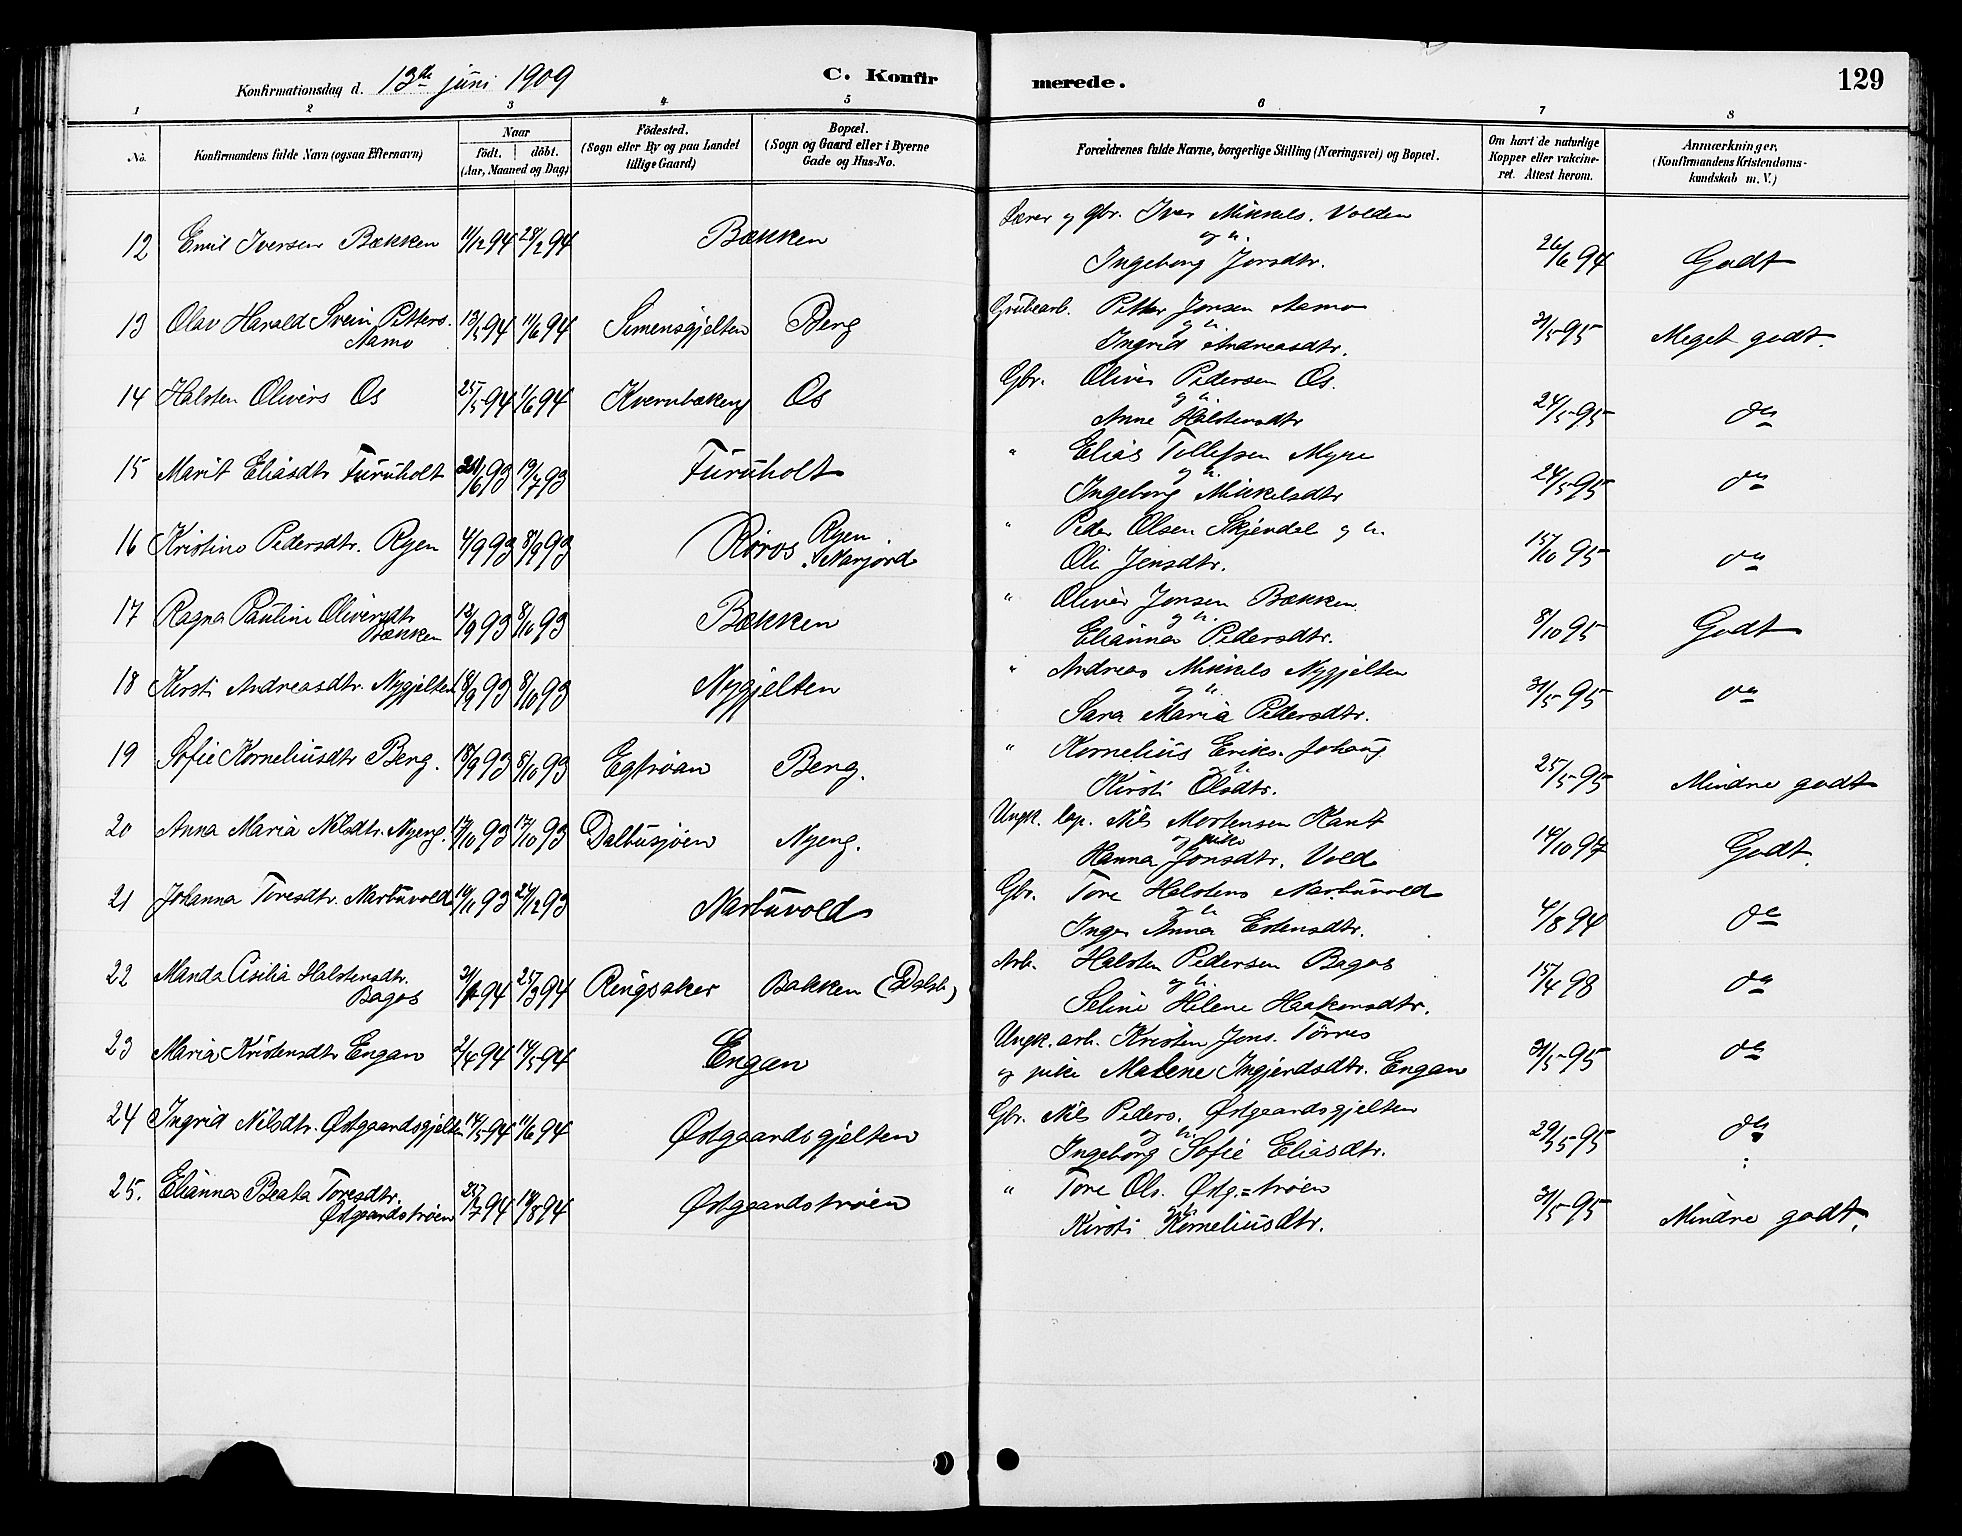 Konfirmationsdag d. 13de juni 1909
C. Konfirmerede.
129
1 2 3 4 5 6 7 8
No.
Konfirmandens fulde Navn (ogsaa Efternavn)
Naar
födt. döbt.
(Aar, Maaned og Dag)
Födested.
(Sogn eller By og paa Landet
tillige Gaard)
Bopæl.
(Sogn og Gaard eller i Byerne
Gade og Hus-No.
Forældrenes fulde Navne, borgerlige Stilling (Næringsvei) og Bopæl.
Om havt de naturlige
Kopper eller vakcine-
ret. Attest herom.
Anmærkninger.
(Konfirmandens Kristendoms-
kundskab m. V.)
12 Emil Iversen Bækken 11/12 94 28/2 94 Bækken
Lærer og Gbr. Iver Mikkels. Volden
og h.
Ingeborg Jonsdtr. 26/6 94 Godt
13 Olav Harald Svein Petters. Aamo 13/5 94 11/6 94 Simensgjelten Berg
Grubearb. Petter Jonsen Aamo
og h.
Ingrid Andreasdtr. 31/5 95 Meget godt.
14 Halsten Olivers Os 25/5 94 11/6 94 Kvernbakeng Os
Gbr. Oliver Pedersen Os.
og h.
Anne Halstensdtr 24/5 95 do
15 Marit Eliasdtr Furuholt 24/6 93 19/7 93 Furuholt
" Elias Tollefsen Myre
og h.
Ingeborg Mikkelsdtr 24/5 95 do
16 Kristine Pedersdtr. Ryen 4/9 93 8/9 93 Röros Ryen Narjord
" Peder Olsen Skjendal og h.
Oli Jensdtr. 15/10 95 do
17 Ragna Pauline Oliversdtr Bækken 12/9 93 8/10 93 Bækken
" Oliver Jonsen Bækken
og h.
Elianna Pedersdtr. 8/10 95 Godt
18 Kirsti Andreasdtr. Nygjelten 18/9 93 8/10 93 Nygjelten
" Andreas Mikkels Nygjelten
og h.
Sara Maria Pedersdtr. 31/5 95 do
19 Sofie Korneliusdtr Berg. 18/9 93 8/10 93 Egtrøan Berg.
" Kornelius Eriks. Johaug
og h.
Kirsti Olsdtr. 25/5 95 Mindre godt
20 Anna Maria Nilsdtr. Nyeng. 17/10 93 17/10 93 Dalbusjøen Nyeng.
Ungk. lap. Nils Mortensen Kant
og pike
Hanna Jonsdtr. Vold 14/10 97 Godt
21 Johanna Toresdtr. Narbuvold 19/11 93 24/12 93 Narbuvold
Gbr. Tore Halstens Narbuvold
og h.
Inger Anna Estensdtr. 4/8 94 do
22 Manda Cisilia Halstensdtr. Bagos 94 25/3 94 Ringsaker Bakken (Dalsb.)
Arb. Halsten Pedersen Bagos
og h.
Seline Helene Haakonsdtr. 15/4 98 do
23 Maria Kristensdtr Engan 2/4 94 14/5 94 Engan
Ungk. arb. Kristen Jons. Törres
og pike Malene Ingjerdsdtr. Engan 31/5 95 do
24 Ingrid Nilsdtr. Østgaardsgjelten 14/5 94 11/6 94 Østgaardsgjelten
Gbr. Nils Peders. Østgaardsgjelten
og h.
Ingeborg Sofie Eliasdtr. 29/5 95 do
25. Elianna Beata Toresdtr. Østgaardstrøen 94 19/8 94 Østgaardstrøen
" Tore Ols. Østg.=trøen
og h.
Kirsti Korneliusdtr. 31/5 95 Mindre godt.